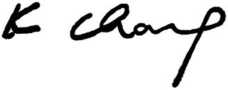 K Chang